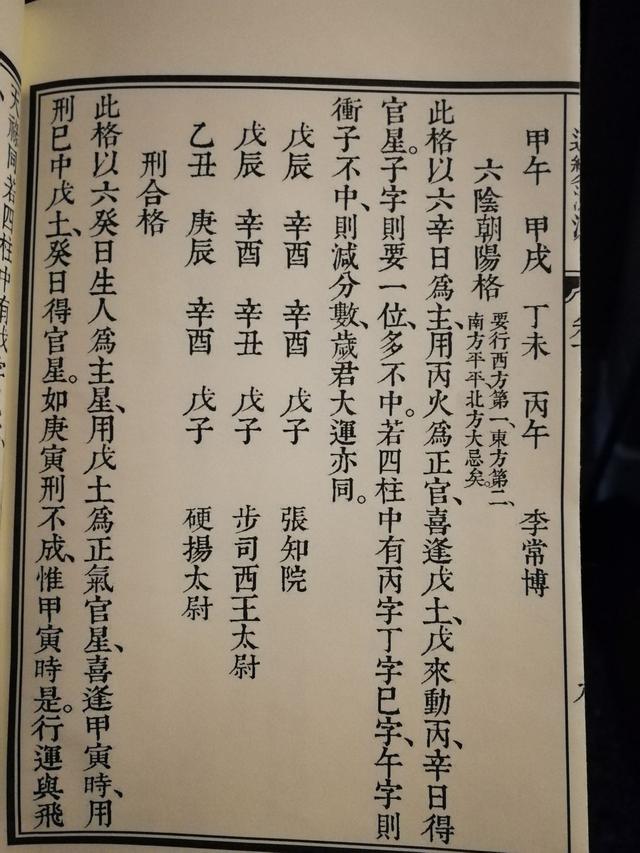 甲午 甲戌 丁未 丙午 李常博
六陰朝陽格
要行西方第一、東方第二、
南方平平、北方大忌矣。
此格以六辛日為主、用丙火為正官、喜逢戊土、戊來動丙、辛日得
官星。子字則要一位、多不中。若四柱中有丙字丁字巳字、午字則
衝子不中、則減分數、歲君大運亦同。
戊辰 辛酉 辛酉 戊子 張知院
戊辰 辛酉 辛丑 戊子 步司西王太尉
乙丑 庚辰 辛酉 戊子 硬揚太尉
刑合格
此格以六癸日生人為主星、用戊土為正氣官星、喜逢甲寅時、用
刑巳中戊土、癸日得官星。如庚寅刑不成、惟甲寅時是。行運與飛
同若四柱中有